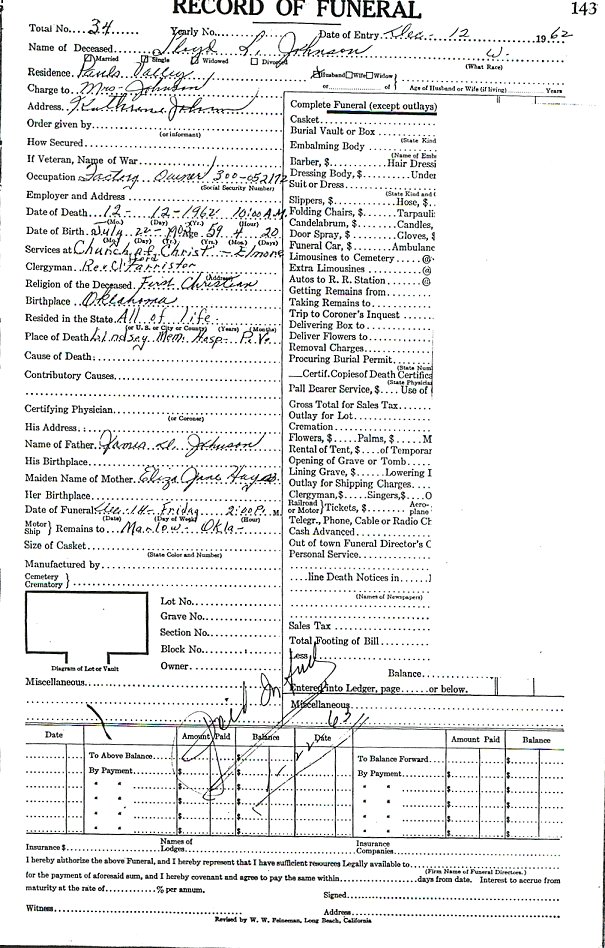 RECORD OF FUNERAL
143
Total No. 34 Yearly No. Date of Entry Dec - 12 1962
Name of Deceased Lloyd L. Johnson W.
Married Single Widowed Divorced (What Race)
Residence Pauls Valley Husband Wife Widow
or of Age of Husband or Wife (if living) Years
Charge to Mrs Johnson
Address Johnson
Order given by
(or informant)
How Secured
If Veteran, Name of War
Occupation Factory Owner 300-05-2192
(Social Security Number)
Employer and Address
Date of Death 12 - 12 - 1962 10:00 A.M.
(Mo.) (Day) (Yr.) (Hour)
Date of Birth July 22 - 1903 Age 59 4 20
(Mo.) (Day) (Yr.) (Yrs.) (Mos.) (Days)
Services at Church of Christ - Elmore
Clergyman Rev
Religion of the Deceased First Christian
(Address)
Birthplace Oklahoma
Resided in the State All of life
(or U. S. or City or County) (Years) (Months)
Place of Death Lindsay Mem. Hosp - P.V.
Cause of Death:
Contributory Causes
Certifying Physician
(or Coroner)
His Address :
Name of Father James D. Johnson
His Birthplace
Maiden Name of Mother Eliza Jane Hayes
Her Birthplace
Date of Funeral Dec - 14 - Friday 2:00 P. M.
(Date) (Day of Week) (Hour)
Motor Ship } Remains to Marlow - Okla -
Size of Casket
(State Color and Number)
Manufactured by
Cemetery Crematory }
Lot No.
Grave No.
Section No.
Block No.
Diagram of Lot or Vault Owner
Miscellaneous
Complete Funeral (except outlays)
Casket
Burial Vault or Box
(State Kind
Embalming Body
(Name of Emb
Barber, $ Hair Dressi
Dressing Body, $ Unde
Suit or Dress
(State Kind and
Slippers, $ Hose, $
Folding Chairs, $ Tarpauli
Candelabrum, $ Candles,
Door Spray, $ Gloves, $
Funeral Car, $ Ambulanc
Limousines to Cemetery @
Extra Limousines @
Autos to R. R. Station @
Getting Remains from
Taking Remains to
Trip to Coroner's Inquest
Delivering Box to
Deliver Flowers to
Removal Charges
Procuring Burial Permit
(State Num
Certif. Copies of Death Certifica
(State Physicia
Pall Bearer Service, $ Use of
Gross Total for Sales Tax
Outlay for Lot
Cremation
Flowers, $ Palms, $ M
Rental of Tent, $ of Temporar
Opening of Grave or Tomb
Lining Grave, $ Lowering
Outlay for Shipping Charges
Clergyman, $ Singers, $ O
Railroad or Motor } Tickets, $ Aeroplane
Telegr., Phone, Cable or Radio Ch
Cash Advanced
Out of town Funeral Director's C
Personal Service
line Death Notices in
(Names of Newspapers)
Sales Tax
Total Footing of Bill
Less
Balance
Entered into Ledger, page or below.
Miscellaneous
Paid In full
Date Amount Paid Balance Date Amount Paid Balance
To Above Balance $ $ To Balance Forward $
By Payment $ $ By Payment $ $
" " $ $ " " $ $
" " $ $ " " $ $
" " $ $ " " $ $
" " $ $ " " $ $
Insurance $ Names of Lodges Insurance Companies
I hereby authorize the above Funeral, and I hereby represent that I have sufficient resources Legally available to
(Firm Name of Funeral Directors.)
for the payment of aforesaid sum, and I hereby covenant and agree to pay the same within days from date. Interest to accrue from
maturity at the rate of % per annum.
Signed
Witness Address
Revised by W. W. Feineman, Long Beach, California